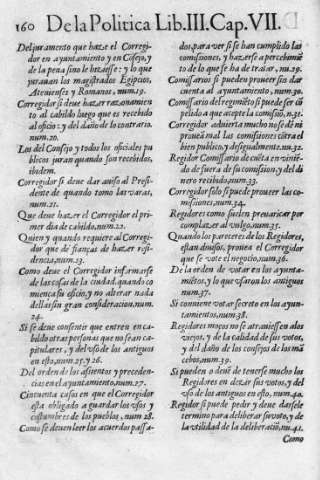 160 De la Politica Lib.III.Cap.VII.
Del juramento que haze el Corregi-
dor en ayuntamiento y en Cōsejo, y
de la pena sino le hiziesse: y lo que
jurauan los magistrados Egipcios,
Atenienses y Romanos, num.19.
Corregidor si deue hazer razonamien
to al cabildo luego que es recebido
al oficio: y del daño de lo contrario.
num.20.
Los del Consejo y todos los oficiales pu
blicos juran quando son recebidos,
ibidem.
Corregidor si deue dar auiso al Presi-
dente de quando tomo las varas,
num.21.
Que deue hazer el Corregidor el pri-
mer dia de cabildo, num.22.
Quien y quando requiere al Corregi-
dor que de fianças de hazer resi-
dencia, num.23.
Como deue el Corregidor informarse
de las cosas de la ciudad, quando co
miença su oficio, y no alterar nada
dellas sin gran consideracion, num.
24.
Si se deue consentir que entren en ca-
bildo otras personas que no sean ca-
pitulares, y del vso de los antiguos
en esto, num.25. y 26.
Del orden de los assientos y preceden-
cias en el ayuntamiento, num.27.
Cincuenta casos en que el Corregidor
esta obligado a guardar los vsos y
costumbres de los pueblos, num 28.
Como se deuen leer los acuerdos passa-
dos, para ver si se han cumplido las
comissiones, y hazerse apercebimiē
to de lo que se ha de tratar, nu.29.
Comissarios si pueden proueerse sin dar
cuenta al ayuntamiento, num.30.
Comissario del regimiēto si puede ser cō
pelido a que acepte la comissiō, n.31.
Corregidor aduierta mucho no se dē ni
prouea mal las comissiones cōtra el
bien publico, y desigualmente. nu.32.
Regidor Comissario de cuēta en viniē-
do de fuera de su comission, y del di
nero recibido, num.33.
Corregidor solo si puede proueer las co-
missiones, num.34.
Regidores como suelen preuaricar por
complazer al vulgo, num.35.
Quando los pareceres de los Regidores,
estan dudosos, prouea el Corregidor
que se vote el negocio, num.36.
De la orden de votar en los ayunta-
miētos, y lo que vsaron los antiguos
num.37.
Si conuiene votar secreto en los ayun-
tamientos, num.38.
Regidores moços no se atrauiessen a los
viejos, y de la calidad de sus votos,
y del daño de los consejos de los mā
cebos, num.39.
Si pueden o deuē detenerse mucho los
Regidores en dezir sus votos, y del
vso de los antiguos en esto, num.40.
Regidor si puede pedir y deue darsele
termino para deliberar su voto, y de
la vtilidad de la deliberaciō, nu.41.
Como